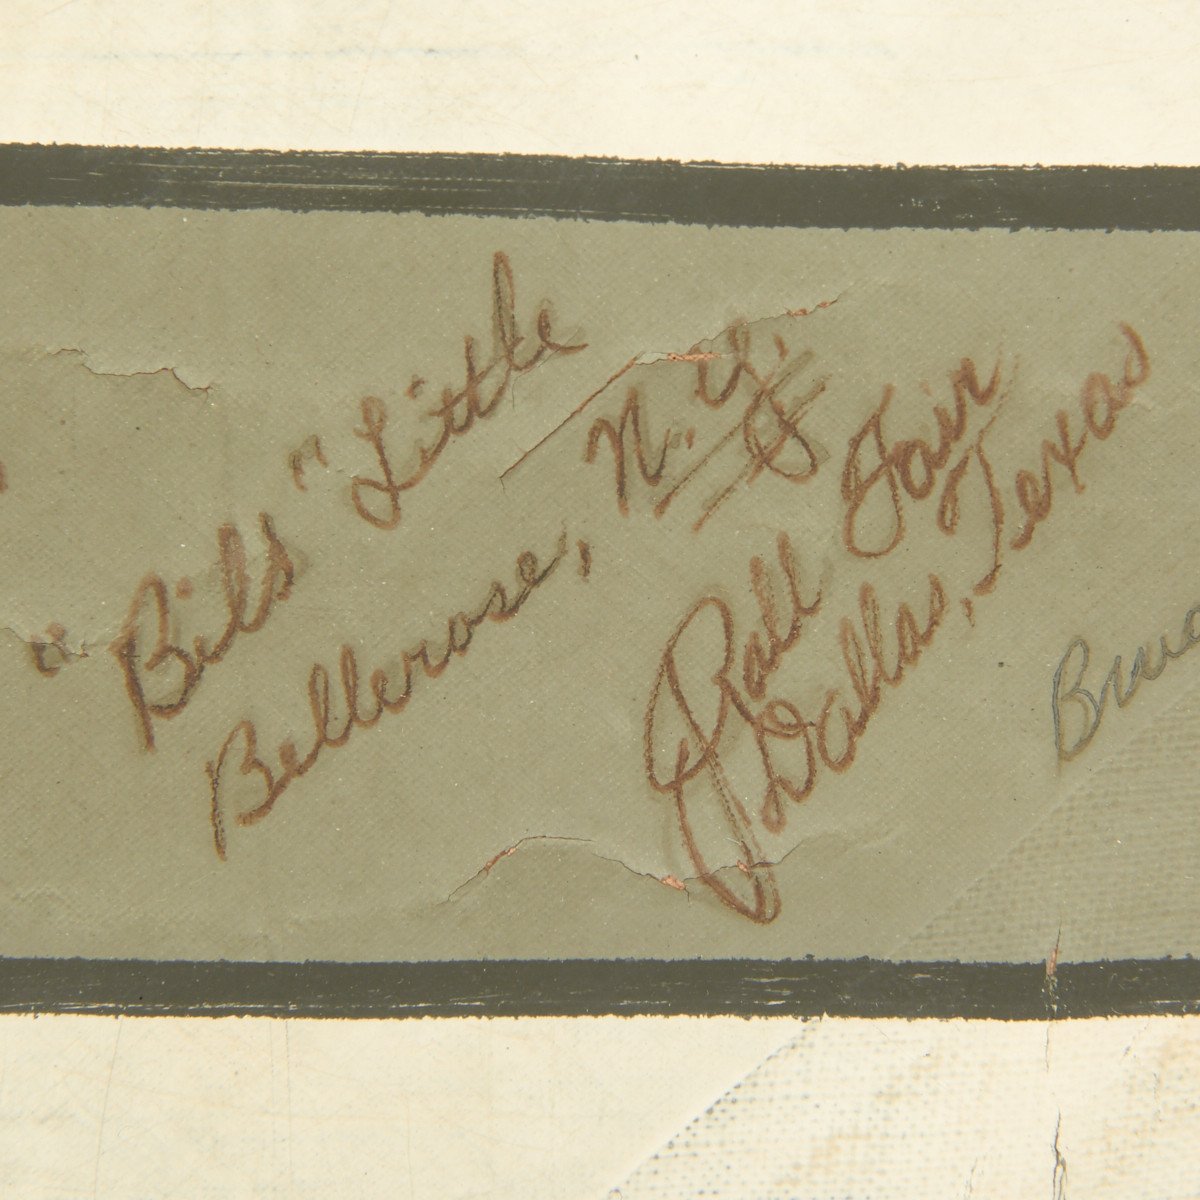 "Bils" Little
Bellerose, N.Y.
Rall Fair
Dallas, Texas